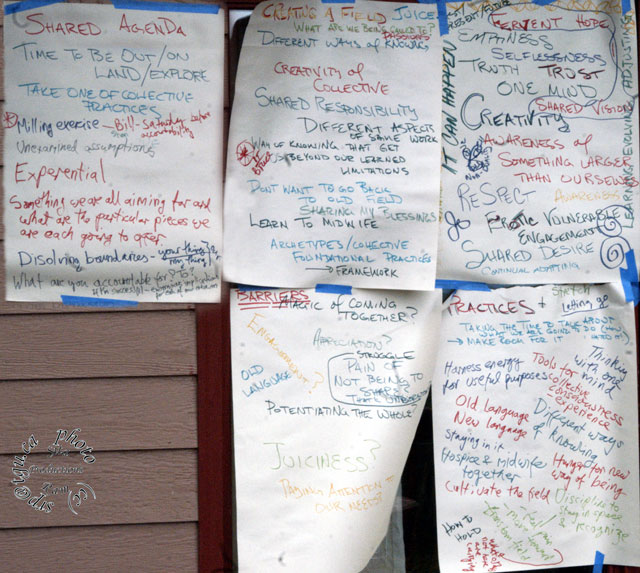 SHARED AGENDA
TIME TO BE OUT/ON
LAND/EXPLORE
TAKE ONE OF COLLECTIVE
PRACTICES
Milling exercise - Bill - Saturday before
accountability
Unexamined assumptions
Experential
Something we are all aiming for and
what are the particular pieces we
are each going to offer
Disolving boundaries -
What are you accountable for
CREATING A FIELD JUICE
WHAT ARE WE BEING CALLED TO?
DIFFERENT WAYS OF KNOWING
CREATIVITY OF
COLLECTIVE
SHARED RESPONSIBILITY
DIFFERENT ASPECTS
OF SAME WORK
WAYS OF KNOWING THAT GET
US BEYOND OUR LEARNED
LIMITATIONS
DONT WANT TO GO BACK
TO OLD FIELD
SHARING MY BLESSINGS
LEARN TO MIDWIFE
ARCHETYPES/COLLECTIVE
FOUNDATIONAL PRACTICES
→ FRAMEWORK
IT CAN HAPPEN
FERVENT HOPE
EMPTINESS
SELFLESSNESS
TRUTH TRUST
ONE MIND
SHARED VISION
CREATIVITY
AWARENESS OF
SOMETHING LARGER
THAN OURSELVES
RESPECT
AWARENESS
EROTIC VULNERABLE
ENGAGEMENT
SHARED DESIRE
CONTINUAL ADAPTING
LEARNING EVOLVING ADJUSTING
BARRIERS
MAGIC OF COMING
TOGETHER?
APPRECIATION?
STRUGGLE
PAIN OF
NOT BEING TO
OLD
LANGUAGE
POTENTIATING THE WHOLE
JUICINESS?
PAYING ATTENTION TO
OUR NEEDS
PRACTICES + STRETCH
Letting go
TAKING THE TIME TO TALK ABOUT
WHAT WE ARE GOING TO DO
→ MAKE ROOM FOR IT
Thinking
with one
mind
Harness energy
for useful purposes
Tools for
collective
consciousness
experience
Old Language
New language
Different ways
of knowing
staying in it
Hospice & midwife
together
Hunger for new
way of being
Cultivate the field
Discipline to
stay in space
& recognize
HOW TO
HOLD
photo
Productions